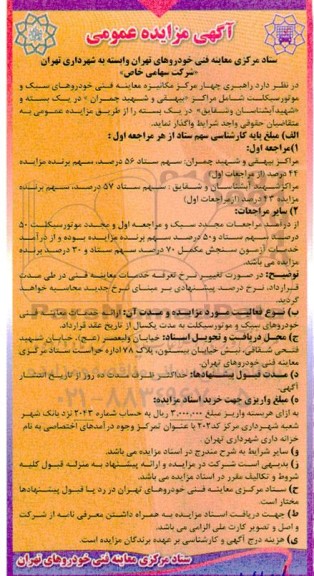 آگهی مزایده عمومی
ستاد مرکزی معاینه فنی خودروهای تهران وابسته به شهرداری تهران
«شرکت سهامی خاص»
در نظر دارد راهبری چهار مرکز مکانیزه معاینه فنی خودروهای سبک و
موتورسیکلت شامل مراکز «بیهقی و شهید چمران» در یک بسته و
«شهید آبشناسان وشقایق» در یک بسته را از طریق مزایده عمومی به
متقاضیان حقوقی واجد شرایط واگذار نماید.
الف) مبلغ پایه کارشناسی سهم ستاد از هر مراجعه اول :
۱)مراجعه اول:
مراکز بیهقی و شهید چمران: سهم ستاد ۵۶ درصد، سهم برنده مزایده
۴۴ درصد (از مراجعات اول)
مراکز شهید آبشناسان و شقایق : سهم ستاد ۵۷ درصد، سهم برنده
مزایده ۴۳ درصد (ازمراجعات اول)
۲) سایر مراجعات:
از درصد مراجعات مجدد سبک و مراجعه اول و مجدد موتورسیکلت ۵۰
درصد سهم ستاد و ۵۰ درصد سهم برنده مزایده بوده و از درآمد
خدمات آزمون سنجش مکمل ۷۰ درصد سهم ستاد و ۳۰ درصد برنده
مزایده می باشد.
توضیح: در صورت تغییر نرخ تعرفه خدمات معاینه فنی در طی مدت
قرارداد، نرخ درصد پیشنهادی بر مبنای نرخ جدید محاسبه خواهد
گردید.
ب) نوع فعالیت مورد مزایده و مدت آن: ارائه خدمات معاینه فنی
خودروهای سبک و موتورسیکلت به مدت یکسال از تاریخ عقد قرارداد.
ج) محل دریافت و تحویل اسناد: خیابان ولیعصر (عج)، خیابان شهید
فتحی شقاقی، نبش خیابان بیستون، پلاک ۷۸ اداره حراست ستاد مرکزی
معاینه فنی خودروهای تهران.
د) مدت قبول پیشنهادها: حداکثر ظرف مدت ده روز از تاریخ انتشار
آگهی.
ه) مبلغ واریزی جهت خرید اسناد مزایده:
به ازای هربسته واریز مبلغ ۳,۰۰۰,۰۰۰ ریال به حساب شماره ۲۰۴۳ نزد بانک شهر
شعبه شهرداری مرکز کد۲۰۲ با عنوان تمرکز وجوه درآمدهای اختصاصی به نام
خزانه داری شهرداری تهران .
و) سایر شرایط به شرح مندرج در اسناد مزایده می باشد.
ز) بدیهی است شرکت در مزایده و ارائه پیشنهاد به منزله قبول کلیه
شروط و تکالیف مقرر در اسناد مزایده می باشد.
ح) ستاد مرکزی معاینه فنی خودروهای تهران در رد یا قبول پیشنهادها
مختار است.
ط) جهت دریافت اسناد مزایده به همراه داشتن معرفی نامه از شرکت
و اصل و تصویر کارت ملی الزامی می باشد.
ی) هزینه درج آگهی و کارشناسی بر عهده برندگان مزایده است.
ستاد مرکزی معاینه فنی خودروهای تهران